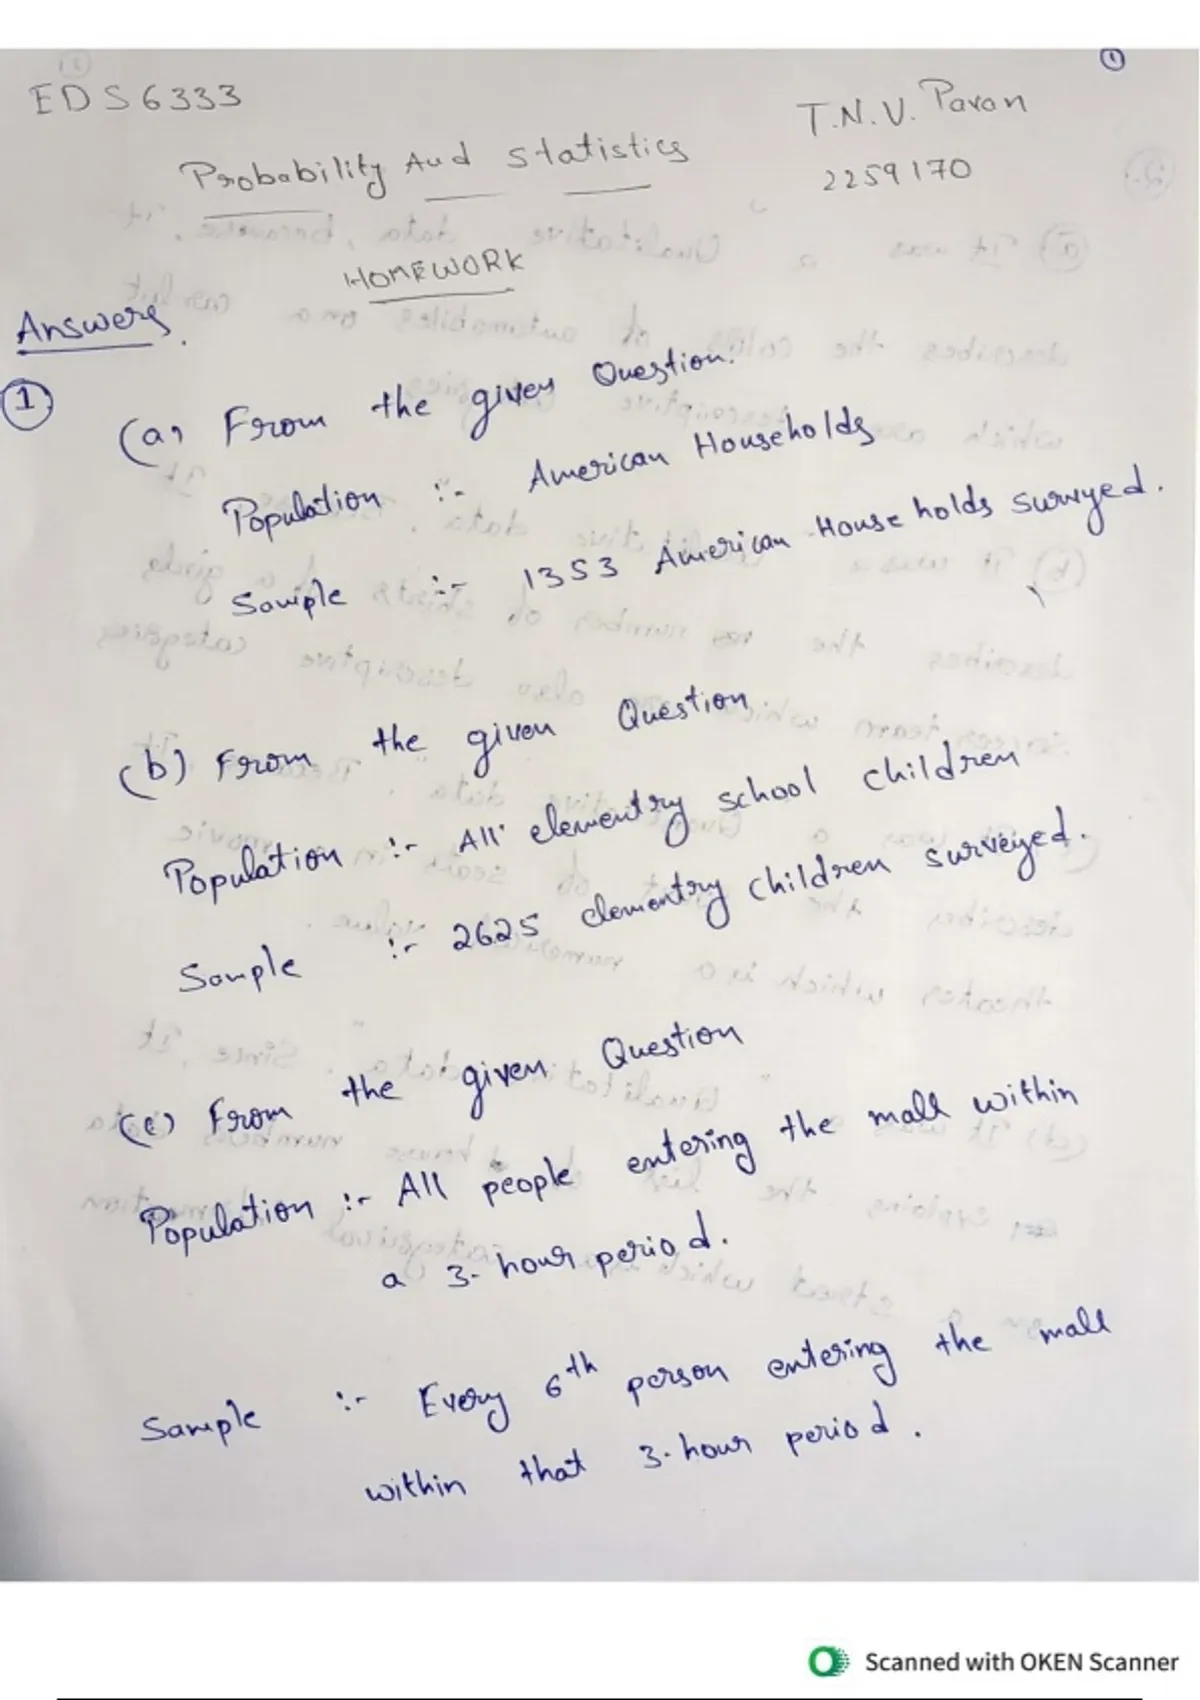 1
EDS6333
T.N.V. Pavan
2259170
Probability And Statistics
HOMEWORK
Answers.
1
(a) From the given Question.
Population :- American Households
Sample :- 1353 American House holds surveyed.
(b) From the given Question
Population :- All elementry school children
Sample :- 2625 elementry children surveyed.
(c) From the given Question
Population :- All people entering the mall within
a 3-hour period.
Sample :- Every 6th person entering the mall
within that 3-hour period.
Scanned with OKEN Scanner